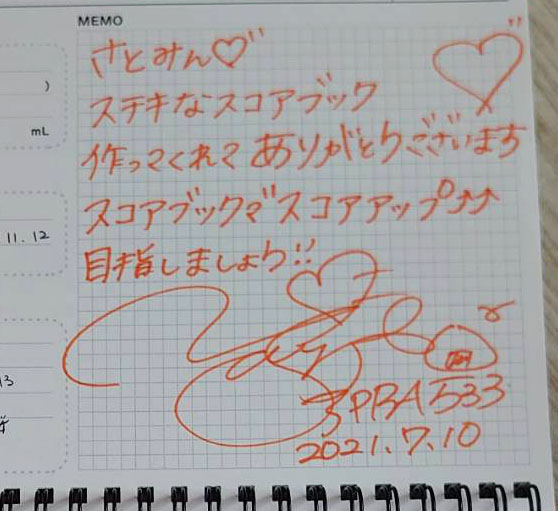 MEMO
さとみん♡
ステキなスコアブック
作ってくれて ありがとうございます
スコアブックで スコアアップ↑↑
目指しましょう!!
JPBA533
2021.7.10
)
mL
11.12
13